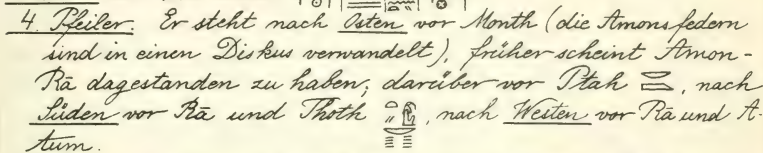 4. Pfeiler. Er steht nach Osten vor Month (die Amonsfedern
sind in einen Diskus verwandelt), früher scheint Amon-
Rā dagestanden zu haben, darüber vor Ptah, nach
Süden vor Rā und Thoth, nach Westen vor Rā und A-
tum.